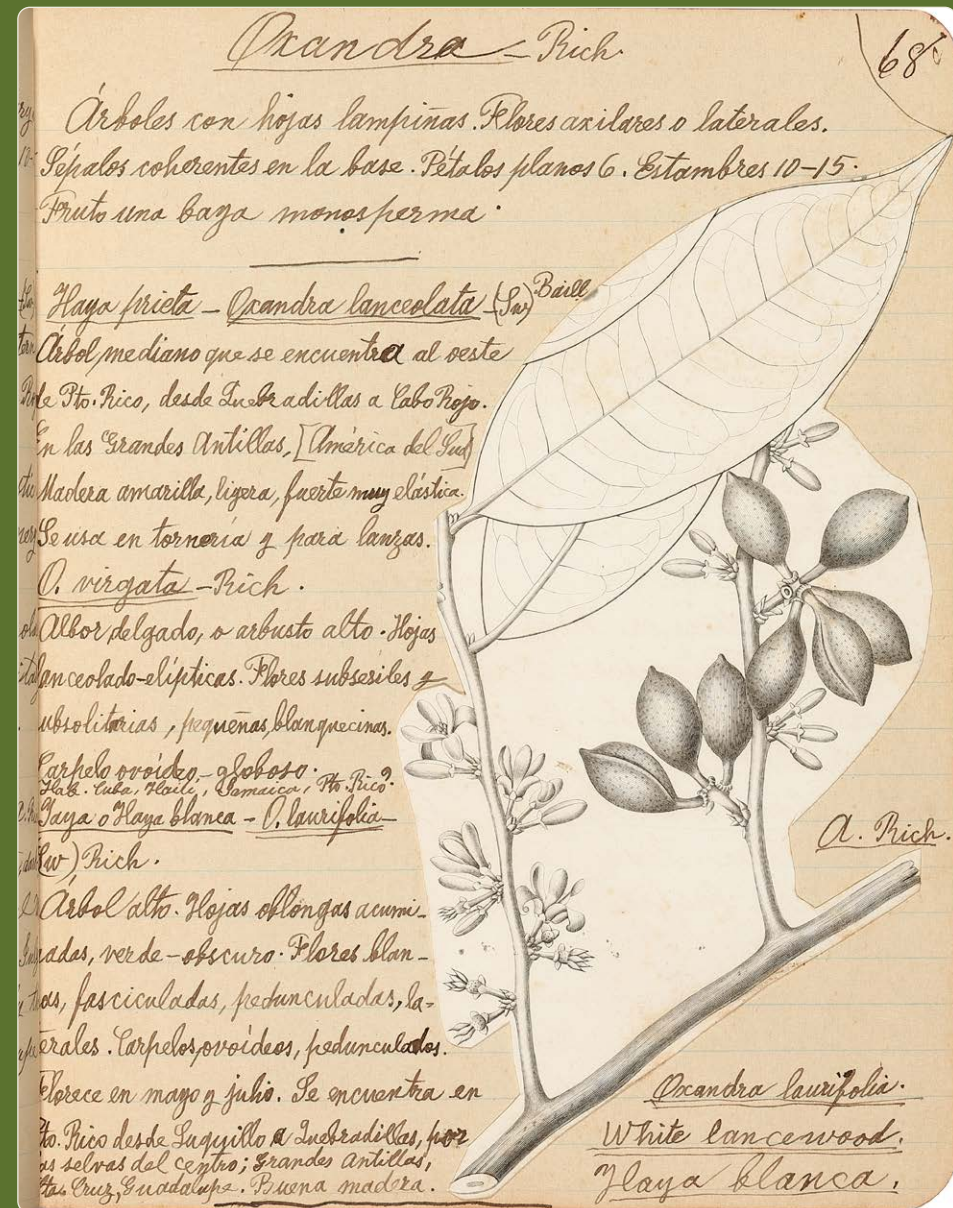 Oxandra – Rich.
68
Árboles con hojas lampiñas. Flores axilares o laterales.
Sépalos coherentes en la base. Pétalos planos 6. Estambres 10–15.
Fruto una baya monosperma.
Haya prieta – Oxandra lanceolata – (Sw) Baill
Árbol mediano que se encuentra al oeste
de Pto. Rico, desde Quebradillas a Cabo Rojo.
En las Grandes Antillas, [América del Sud]
Madera amarilla, ligera, fuerte muy elástica.
Se usa en tornería y para lanzas.
O. virgata – Rich.
Albor, delgado, o arbusto alto. Hojas
lanceolado-elípticas. Flores subsesiles y
ubsolitarias, pequeñas, blanquecinas.
Carpelo ovoídeo – globoso.
Hab. Cuba, Haiti, Jamaica, Pto. Rico?
Yaya o Haya blanca – O. laurifolia –
(Sw) Rich.
Árbol alto. Hojas oblongas acumi-
nadas, verde – obscuro. Flores blan-
cas, fasciculadas, pedunculadas, la-
terales. Carpelos, ovoídeos, pedunculados.
Florece en mayo y julio. Se encuentra en
Pto. Rico desde Luquillo a Quebradillas, por
as selvas del centro; Grandes Antillas,
Sta. Cruz, Guadalupe. Buena madera.
A. Rich.
Oxandra laurifolia.
White lancewood.
Haya blanca.